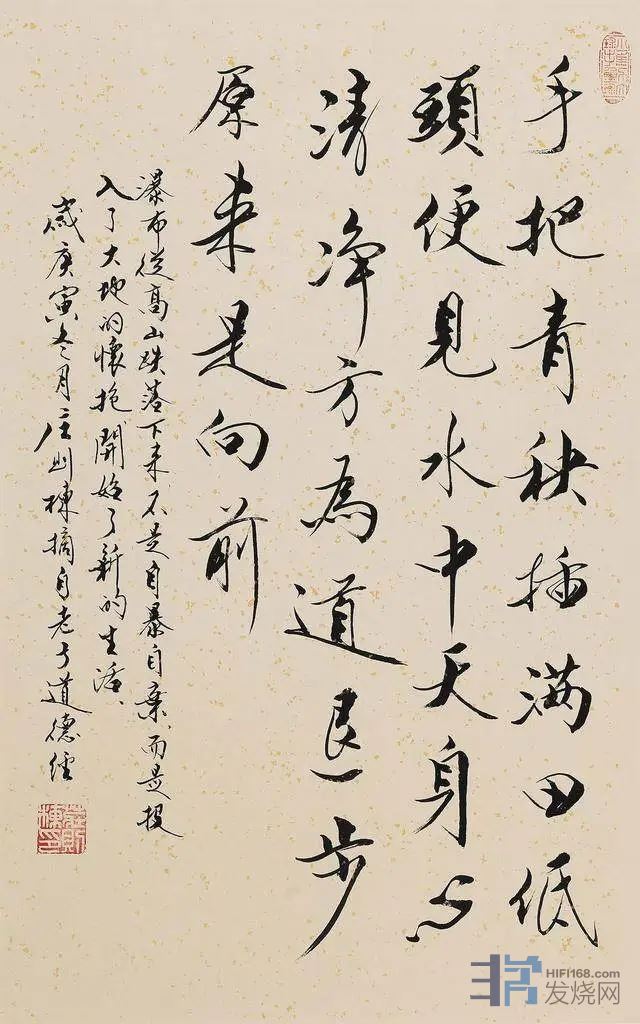 手把青秧插满田低
頭便見水中天身心
清净方為道退一步
原来是向前
瀑布從高山跌落下来不是自暴自棄、而是投
入了大地的懷抱開始了新的生活、
歲庚寅冬月庄则棟摘自老子道德經
莊則棟印
HIFI168.com
发烧网